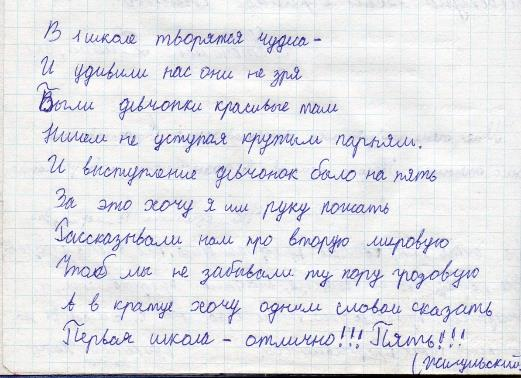 В 1 школе творятся чудиа -
И удивили нас они не зря
Были дѣвчонки красивые там
Ничем не уступая крутым парням.
И выступление дѣвчонок было на пять
За это хочу я им руку пожать
Рассказывали нам про вторую мировую
Чтоб мы не забывали ту пору грозовую
А в кратце хочу одним словом сказать
Первая школа - отлично!!! Пять!!!
(Жигульский